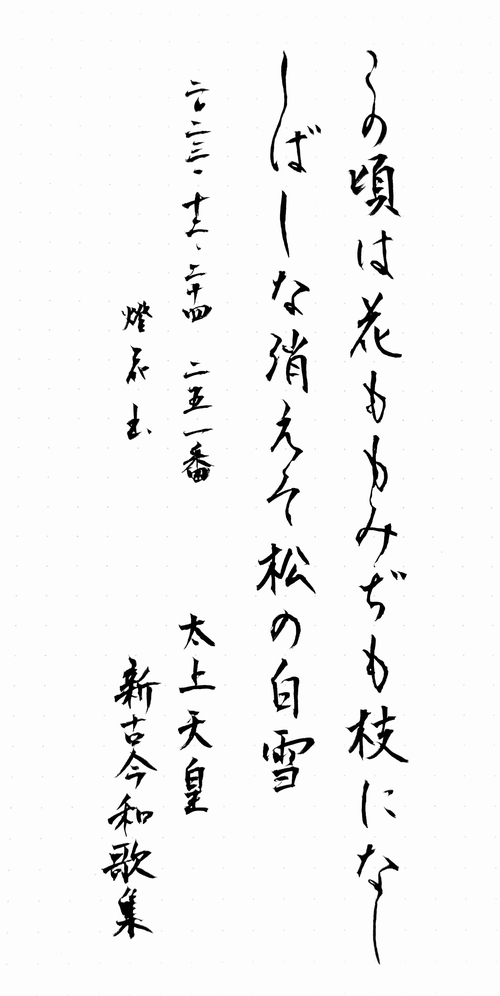 この頃は花ももみぢも枝になし
しばしな消えそ松の白雪
二〇二三、十二、二十四 二五一番
太上天皇
新古今和歌集